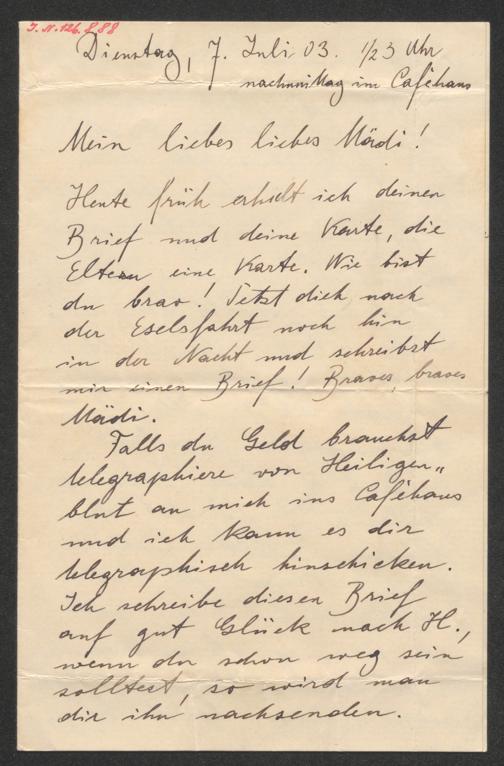 J. N. 126.888
Dienstag, 7. Juli 03. 1/23 Uhr
nachmittag im Caféhaus
Mein liebes liebes Mädi!
Heute früh erhielt ich deinen
Brief und deine Karte, die
Eltern eine Karte. Wie bist
du brav! Setzt dich nach
der Eselsfahrt noch hin
in der Nacht und schreibst
mir einen Brief! Braves, braves
Mädi.
Falls du Geld brauchst
telegraphiere von Heiligen„
blut an mich ins Caféhaus
und ich kann es dir
telegraphisch hinschicken.
Ich schreibe diesen Brief
auf gut Glück nach H.,
wenn du schon weg sein
solltest, so wird man
dir ihn nachsenden.